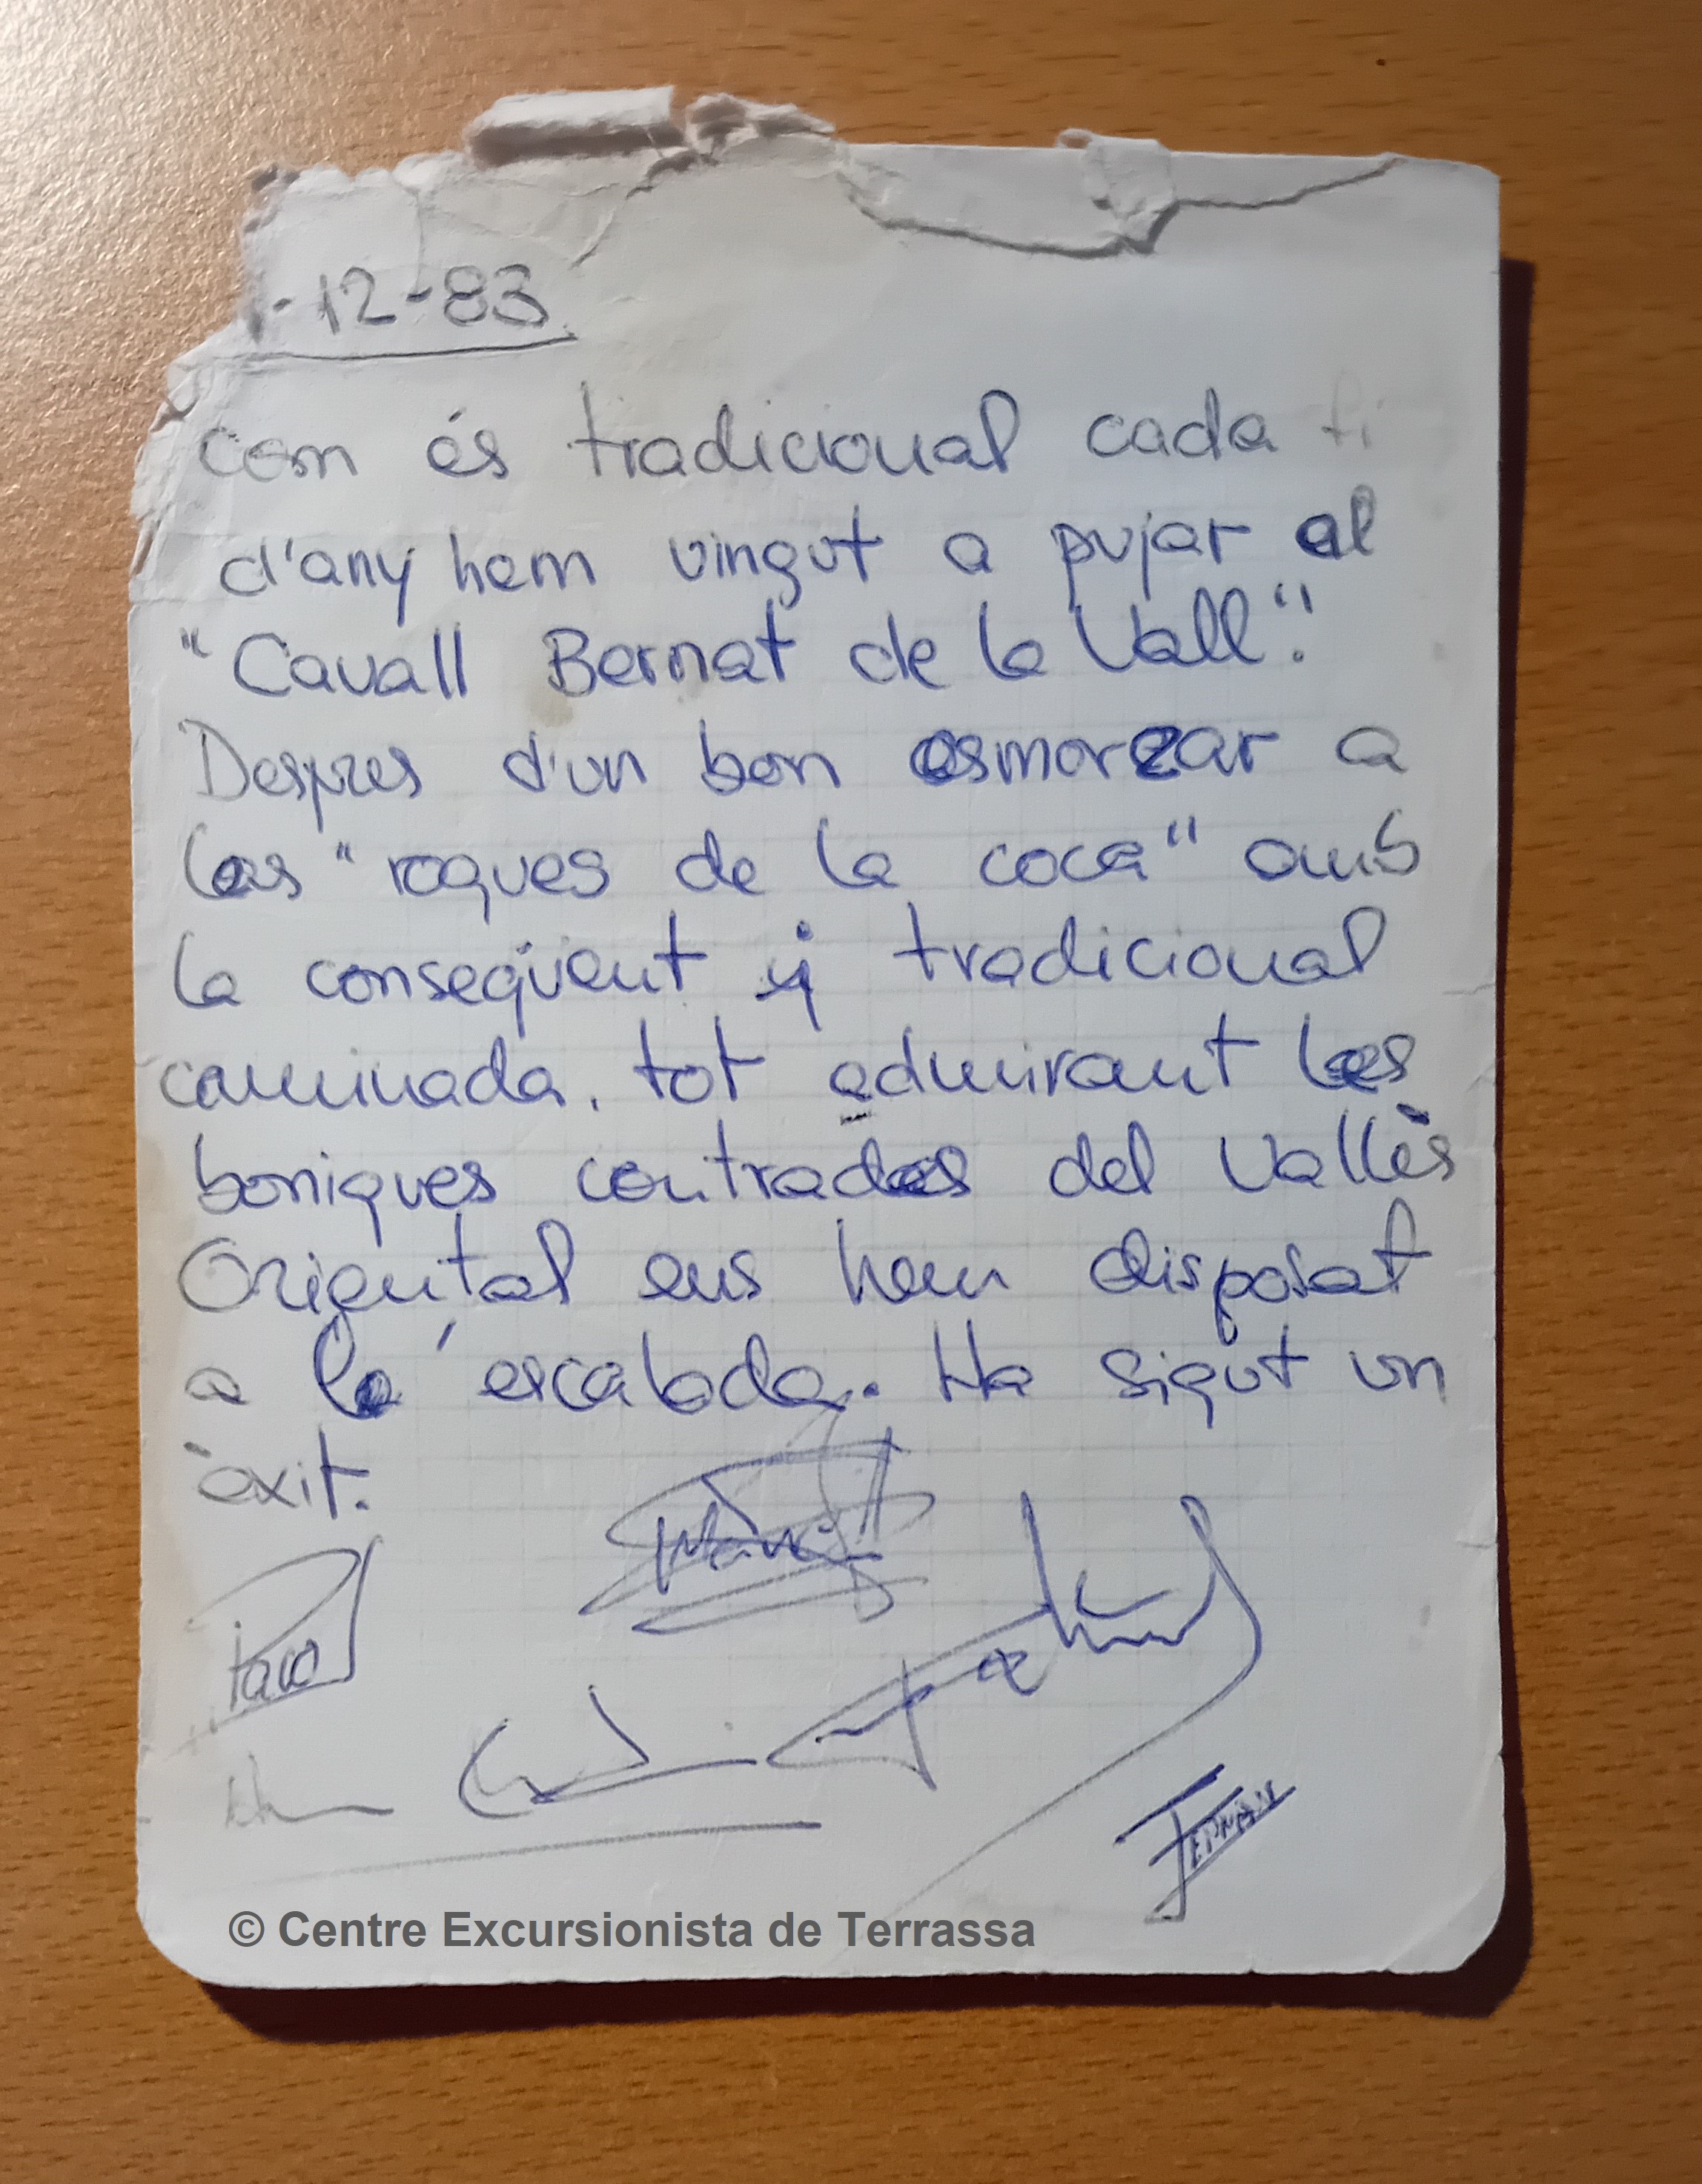 -12-83
Com és tradicional cada fi
d'any hem vingut a pujar al
"Cavall Bernat de la Vall".
Despres d'un bon esmorzar a
les "roques de la coca" amb
la conseqüent i tradicional
caminada, tot admirant les
boniques contrades del Vallès
Oriental ens hem disposat
a l'escalada. Ha sigut un
èxit.
Paco
Fermín
© Centre Excursionista de Terrassa